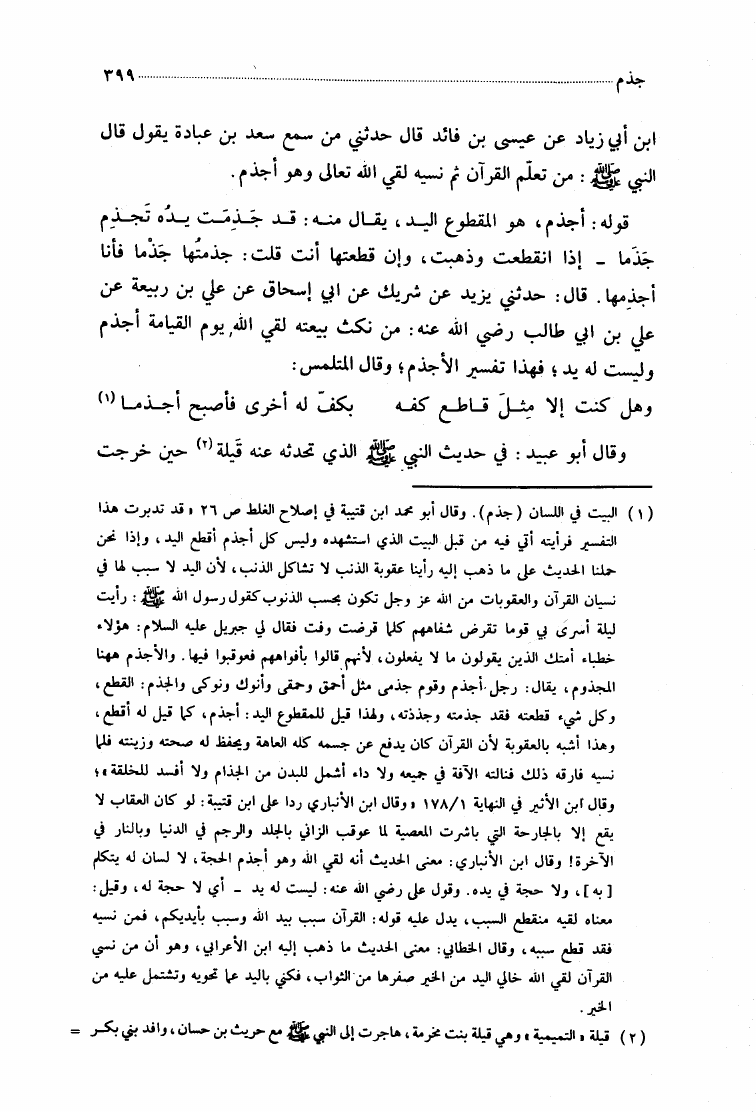 جذم ........ ٣٩٩
ابن أبي زياد عن عيسى بن فائد قال حدثني من سمع سعد بن عبادة يقول قال
النبي ﷺ : من تعلّم القرآن ثم نسيه لقي الله تعالى وهو أجذم .
قوله : أجذم ، هو المقطوع اليد ، يقال منه : قد جَذِمَت يدُه تَجذِم
جَذَما – إذا انقطعت وذهبت ، وإن قطعتها أنت قلت : جذمتُها جَذْما فأنا
أجذِمها . قال : حدثني يزيد عن شريك عن ابي إسحاق عن علي بن ربيعة عن
علي بن ابي طالب رضي الله عنه : من نكث بيعته لقي الله يوم القيامة أجذم
وليست له يد ؛ فهذا تفسير الأجذم ؛ وقال المتلمس :
وهل كنت إلا مِثلَ قاطع كفه بكفّ له أخرى فأصبح أجذما (١)
وقال أبو عبيد : في حديث النبي ﷺ الذي تحدثه عنه قَيلة (٢) حين خرجت
(١) البيت في اللسان ( جذم ) . وقال أبو محمد ابن قتيبة في إصلاح الغلط ص ٢٦ « قد تدبرت هذا
التفسير فرأيته أتي فيه من قبل البيت الذي استشهده وليس كل أجذم أقطع اليد ، وإذا نحن
حملنا الحديث على ما ذهب إليه رأينا عقوبة الذنب لا تشاكل الذنب ، لأن اليد لا سبب لها في
نسيان القرآن والعقوبات من الله عز وجل تكون بحسب الذنوب كقول رسول الله ﷺ : رأيت
ليلة أسرى بي قوما تقرض شفاههم كلما قرضت وفت فقال لي جبريل عليه السلام : هؤلاء
خطباء أمتك الذين يقولون ما لا يفعلون ، لأنهم قالوا بأفواههم فعوقبوا فيها . والأجذم ههنا
المجذوم ، يقال : رجل أجذم وقوم جذمى مثل أحمق وحمقى وأنوك ونوكى والجذم : القطع ،
وكل شيء قطعته فقد جذمته وجذذته ، ولهذا قيل للمقطوع اليد : أجذم ، كما قيل له أقطع ،
وهذا أشبه بالعقوبة لأن القرآن كان يدفع عن جسمه كله العاهة ويحفظ له صحته وزينته فلما
نسيه فارقه ذلك فنالته الآفة في جميعه ولا داء أشمل للبدن من الجذام ولا أفسد للخلقة » ؛
وقال ابن الأثير في النهاية ١٧٨/١ « وقال ابن الأنباري ردا على ابن قتيبة : لو كان العقاب لا
يقع إلا بالجارحة التي باشرت المعصية لما عوقب الزاني بالجلد والرجم في الدنيا وبالنار في
الآخرة ! وقال ابن الأنباري : معنى الحديث أنه لقي الله وهو أجذم الحجة ، لا لسان له يتكلم
[ به ] ، ولا حجة في يده . وقول علي رضي الله عنه : ليست له يد – أي لا حجة له ، وقيل :
معناه لقيه منقطع السبب ، يدل عليه قوله : القرآن سبب بيد الله وسبب بأيديكم ، فمن نسيه
فقد قطع سببه ، وقال الخطابي : معنى الحديث ما ذهب إليه ابن الأعرابي ، وهو أن من نسي
القرآن لقي الله خالي اليد من الخير صفرها من الثواب ، فكني باليد عما تحويه وتشتمل عليه من
الخير .
(٢) قيلة « التميمية » وهي قيلة بنت مخرمة ، هاجرت إلى النبي ﷺ مع حريث بن حسان ، وافد بني بكر =